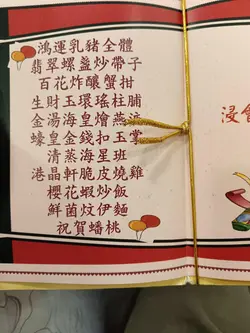 鴻運乳豬全體
翡翠螺盞炒帶子
百花炸釀蟹拑
生財玉環瑤柱脯
金湯海皇燴燕液
蠔皇金錢扣玉掌
清蒸海星班
港晶軒脆皮燒雞
櫻花蝦炒飯
鮮菌炆伊麵
祝賀蟠桃
浸會